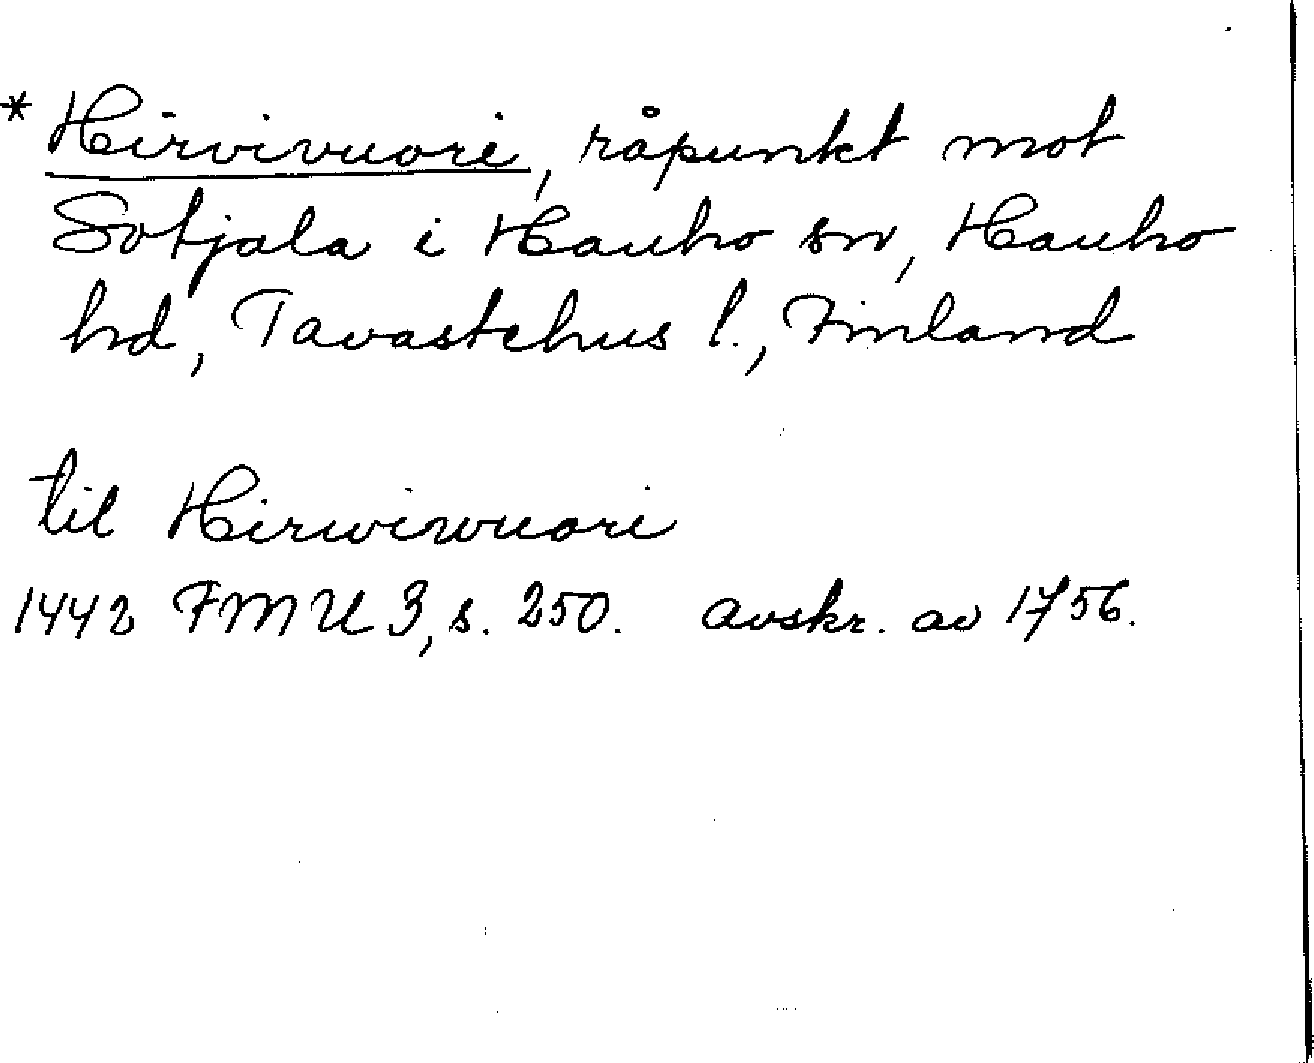 * Hirvivuori, råpunkt mot
Sotjala i Hauho sn, Hauho
hd, Tavastehus l., Finland
til Hirwiwuori
1442 FMU 3, s. 250. avskr. av 1756.